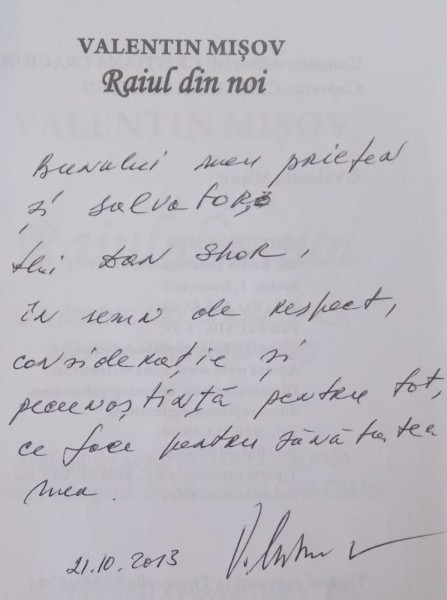 VALENTIN MIȘOV
Raiul din noi
Bunului meu prieten
și salvator,
lui Dan Shor,
în semn de respect,
considerație și
recunoștință pentru tot,
ce face pentru sănătatea
mea.
21.10.2013